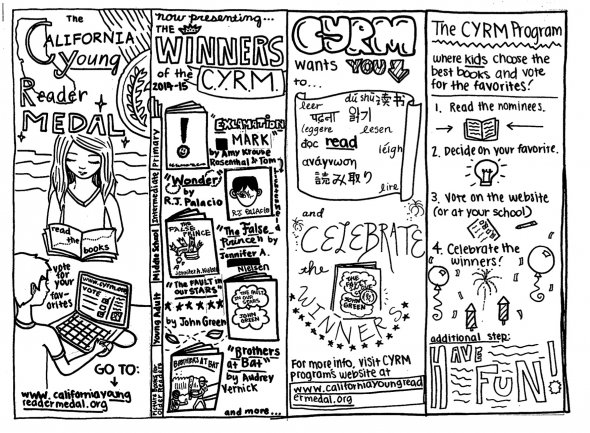 The
CALIFORNIA
Young
Reader
MEDAL
read
the
books
vote
for
your
fav-
orites
www.cyrm.org
VOTE
GO TO:
www.californiayoung
readermedal.org
now presenting...
THE
WINNERS
of the
2014-15
C.Y.R.M.
Primary
!
"EXCLAMATION
MARK"
by Amy Krouse
Rosenthal & Tom
Lichtenheld
Intermediate
"Wonder"
by
R.J. Palacio
R.J. Palacio
Middle School
THE
FALSE
PRINCE
Jennifer A. Nielsen
"The False
Prince" by
Jennifer A.
Nielsen
Young Adult
"THE FAULT IN
OUR STARS"
by John Green
THE FAULT
IN OUR
STARS
JOHN
GREEN
Picture Books for
Older Readers
BROTHERS AT BAT
"Brothers
at Bat"
by Audrey
Vernick
and more...
CYRM
wants YOU
to...
leer
dú shū 读书
पढ़ना 읽기
leggere
lesen
đọc read
léigh
ανάγνωση
読み取り
lire
and
CELEBRATE
the
WINNERS
THE
FAULT
IN OUR
STARS
JOHN
GREEN
For more info, visit CYRM
program's website at
www.californiayoungread
ermedal.org
The CYRM Program
where kids choose the
best books and vote
for the favorites!
1. Read the nominees.
2. Decide on your favorite.
3. Vote on the website
(or at your school)
4. Celebrate the
winners!
additional step:
HAVE
FUN!